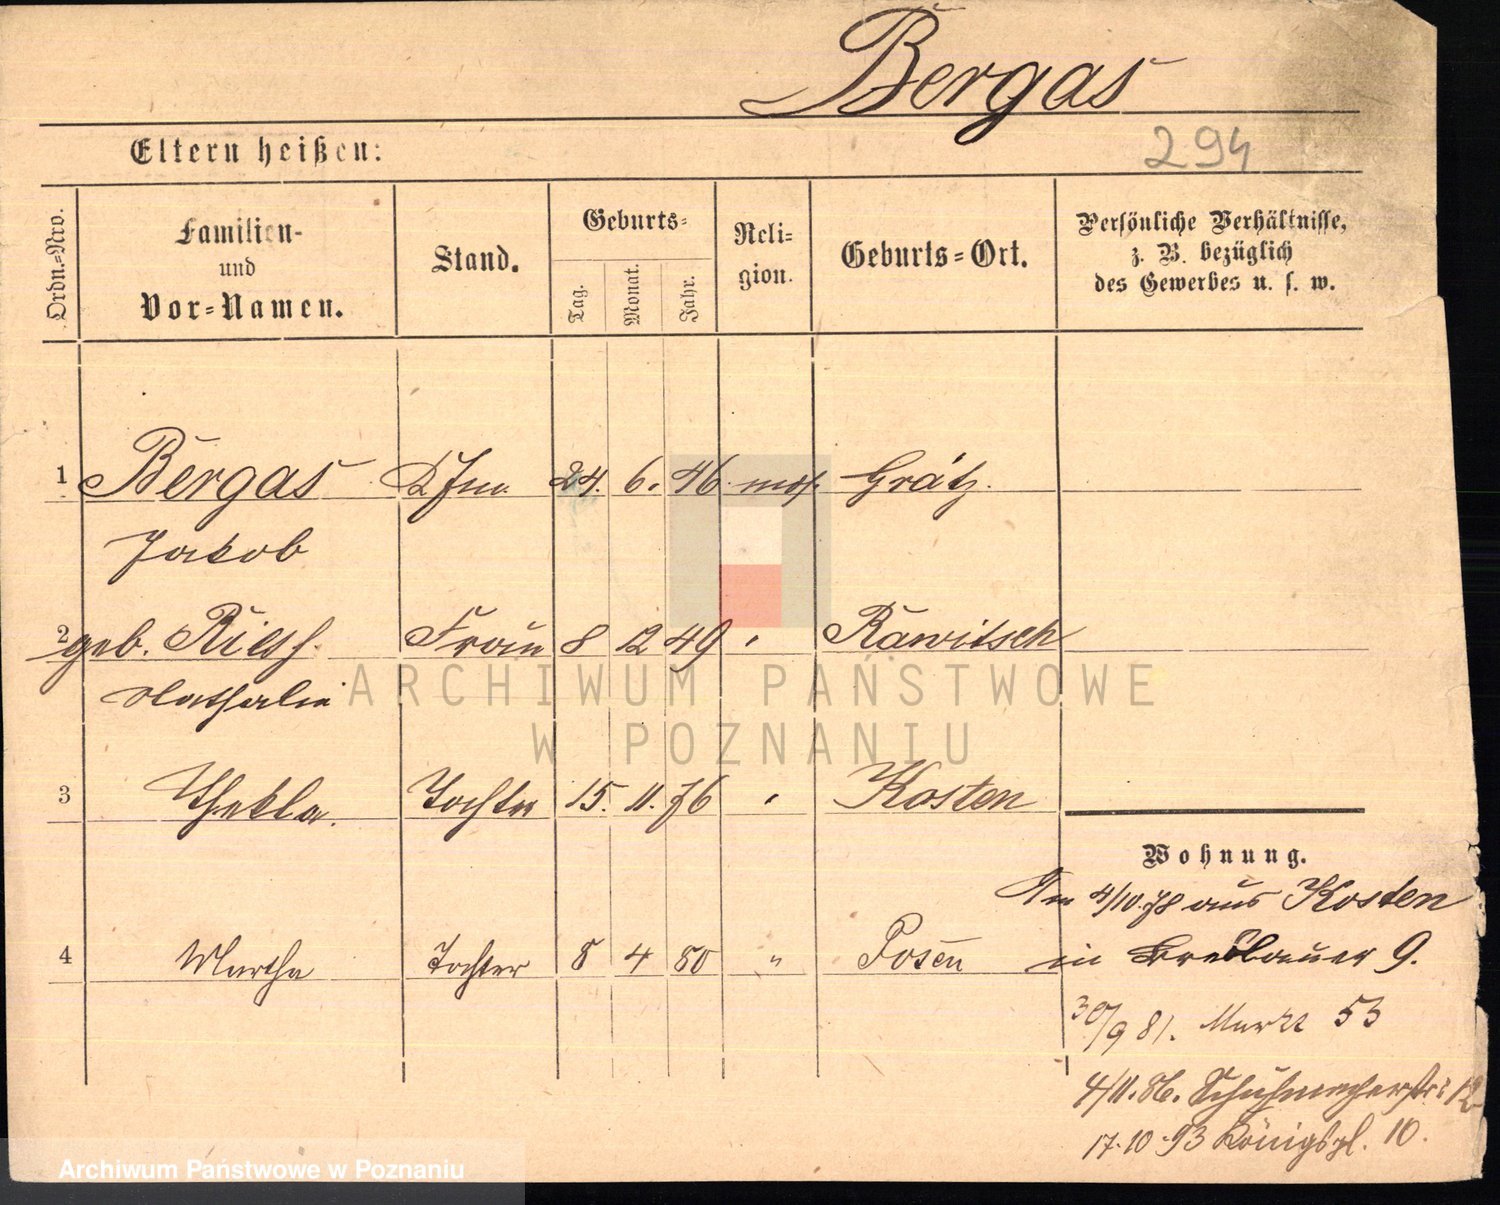 Bergas
294
Eltern heißen:
Ordn.-Nro.
Familien-
und
Vor-Namen.
Stand.
Geburts-
Tag.
Monat.
Jahr.
Reli-
gion.
Geburts-Ort.
Persönliche Verhältnisse,
z. B. bezüglich
des Gewerbes u. s. w.
1 Bergas Kfm. 24. 6. 46. mos. Grätz.
Jakob
2 geb. Frau 8 12 49 " Rawitsch
Nathalie
3 Thekla. Tochter 15. 11. 76 " Kosten
Wohnung.
Am 4/10.78 aus Kosten
4 Martha Tochter 8 4 80 " Posen
in Breslauer 9.
30/9 81. Markt 53
4/11.86. Schuhmacherstr. 12
17.10.93 Königspl. 10.
ARCHIWUM PAŃSTWOWE
W POZNANIU
Archiwum Państwowe w Poznaniu